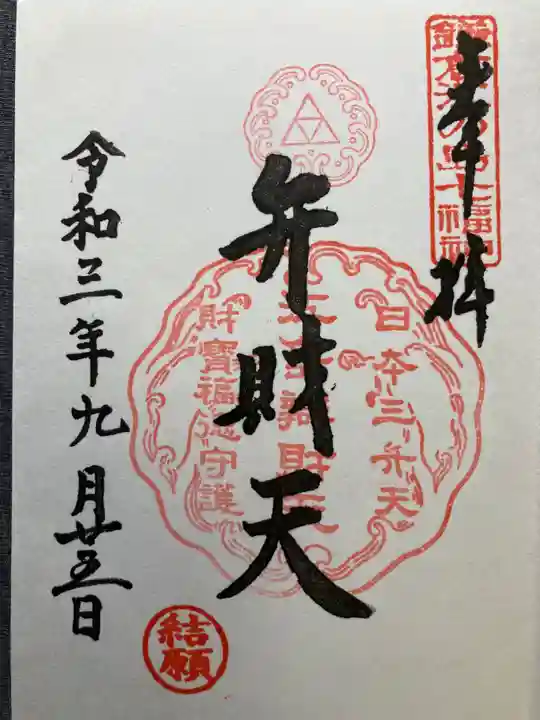 奉拝
弁財天
日本三弁天
財寶福徳守護
令和三年九月廿五日
結願